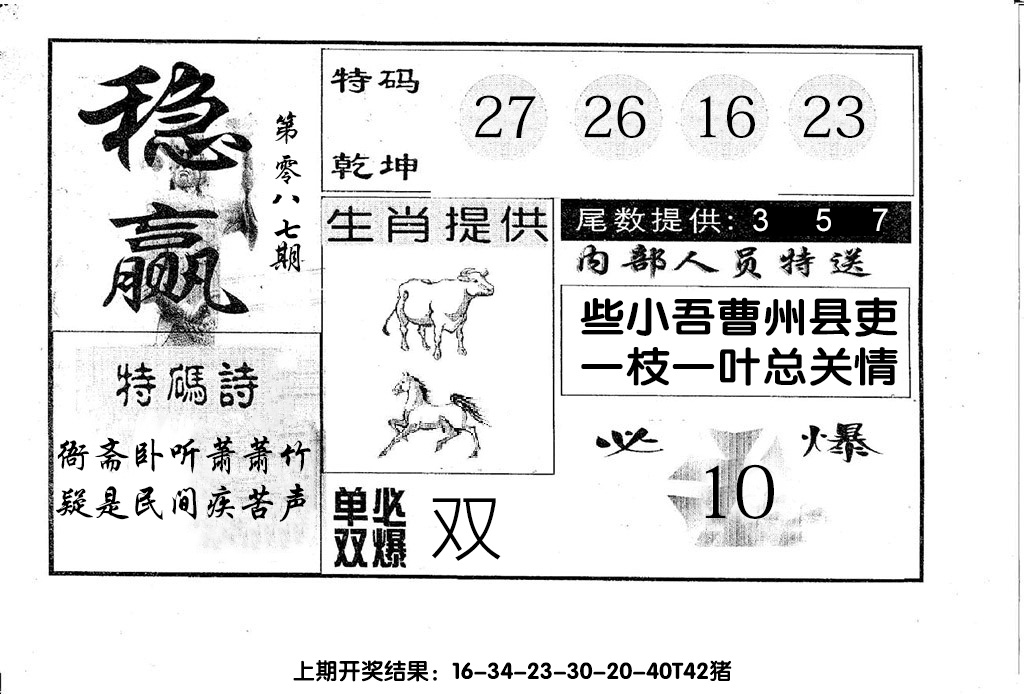 稳赢
第零八七期
特码
乾坤
27 26 16 23
生肖提供
尾数提供: 3 5 7
内部人员特送
些小吾曹州县吏
一枝一叶总关情
特碼詩
衙斋卧听萧萧竹
疑是民间疾苦声
必爆
10
单双必爆
双
上期开奖结果：16-34-23-30-20-40T42猪